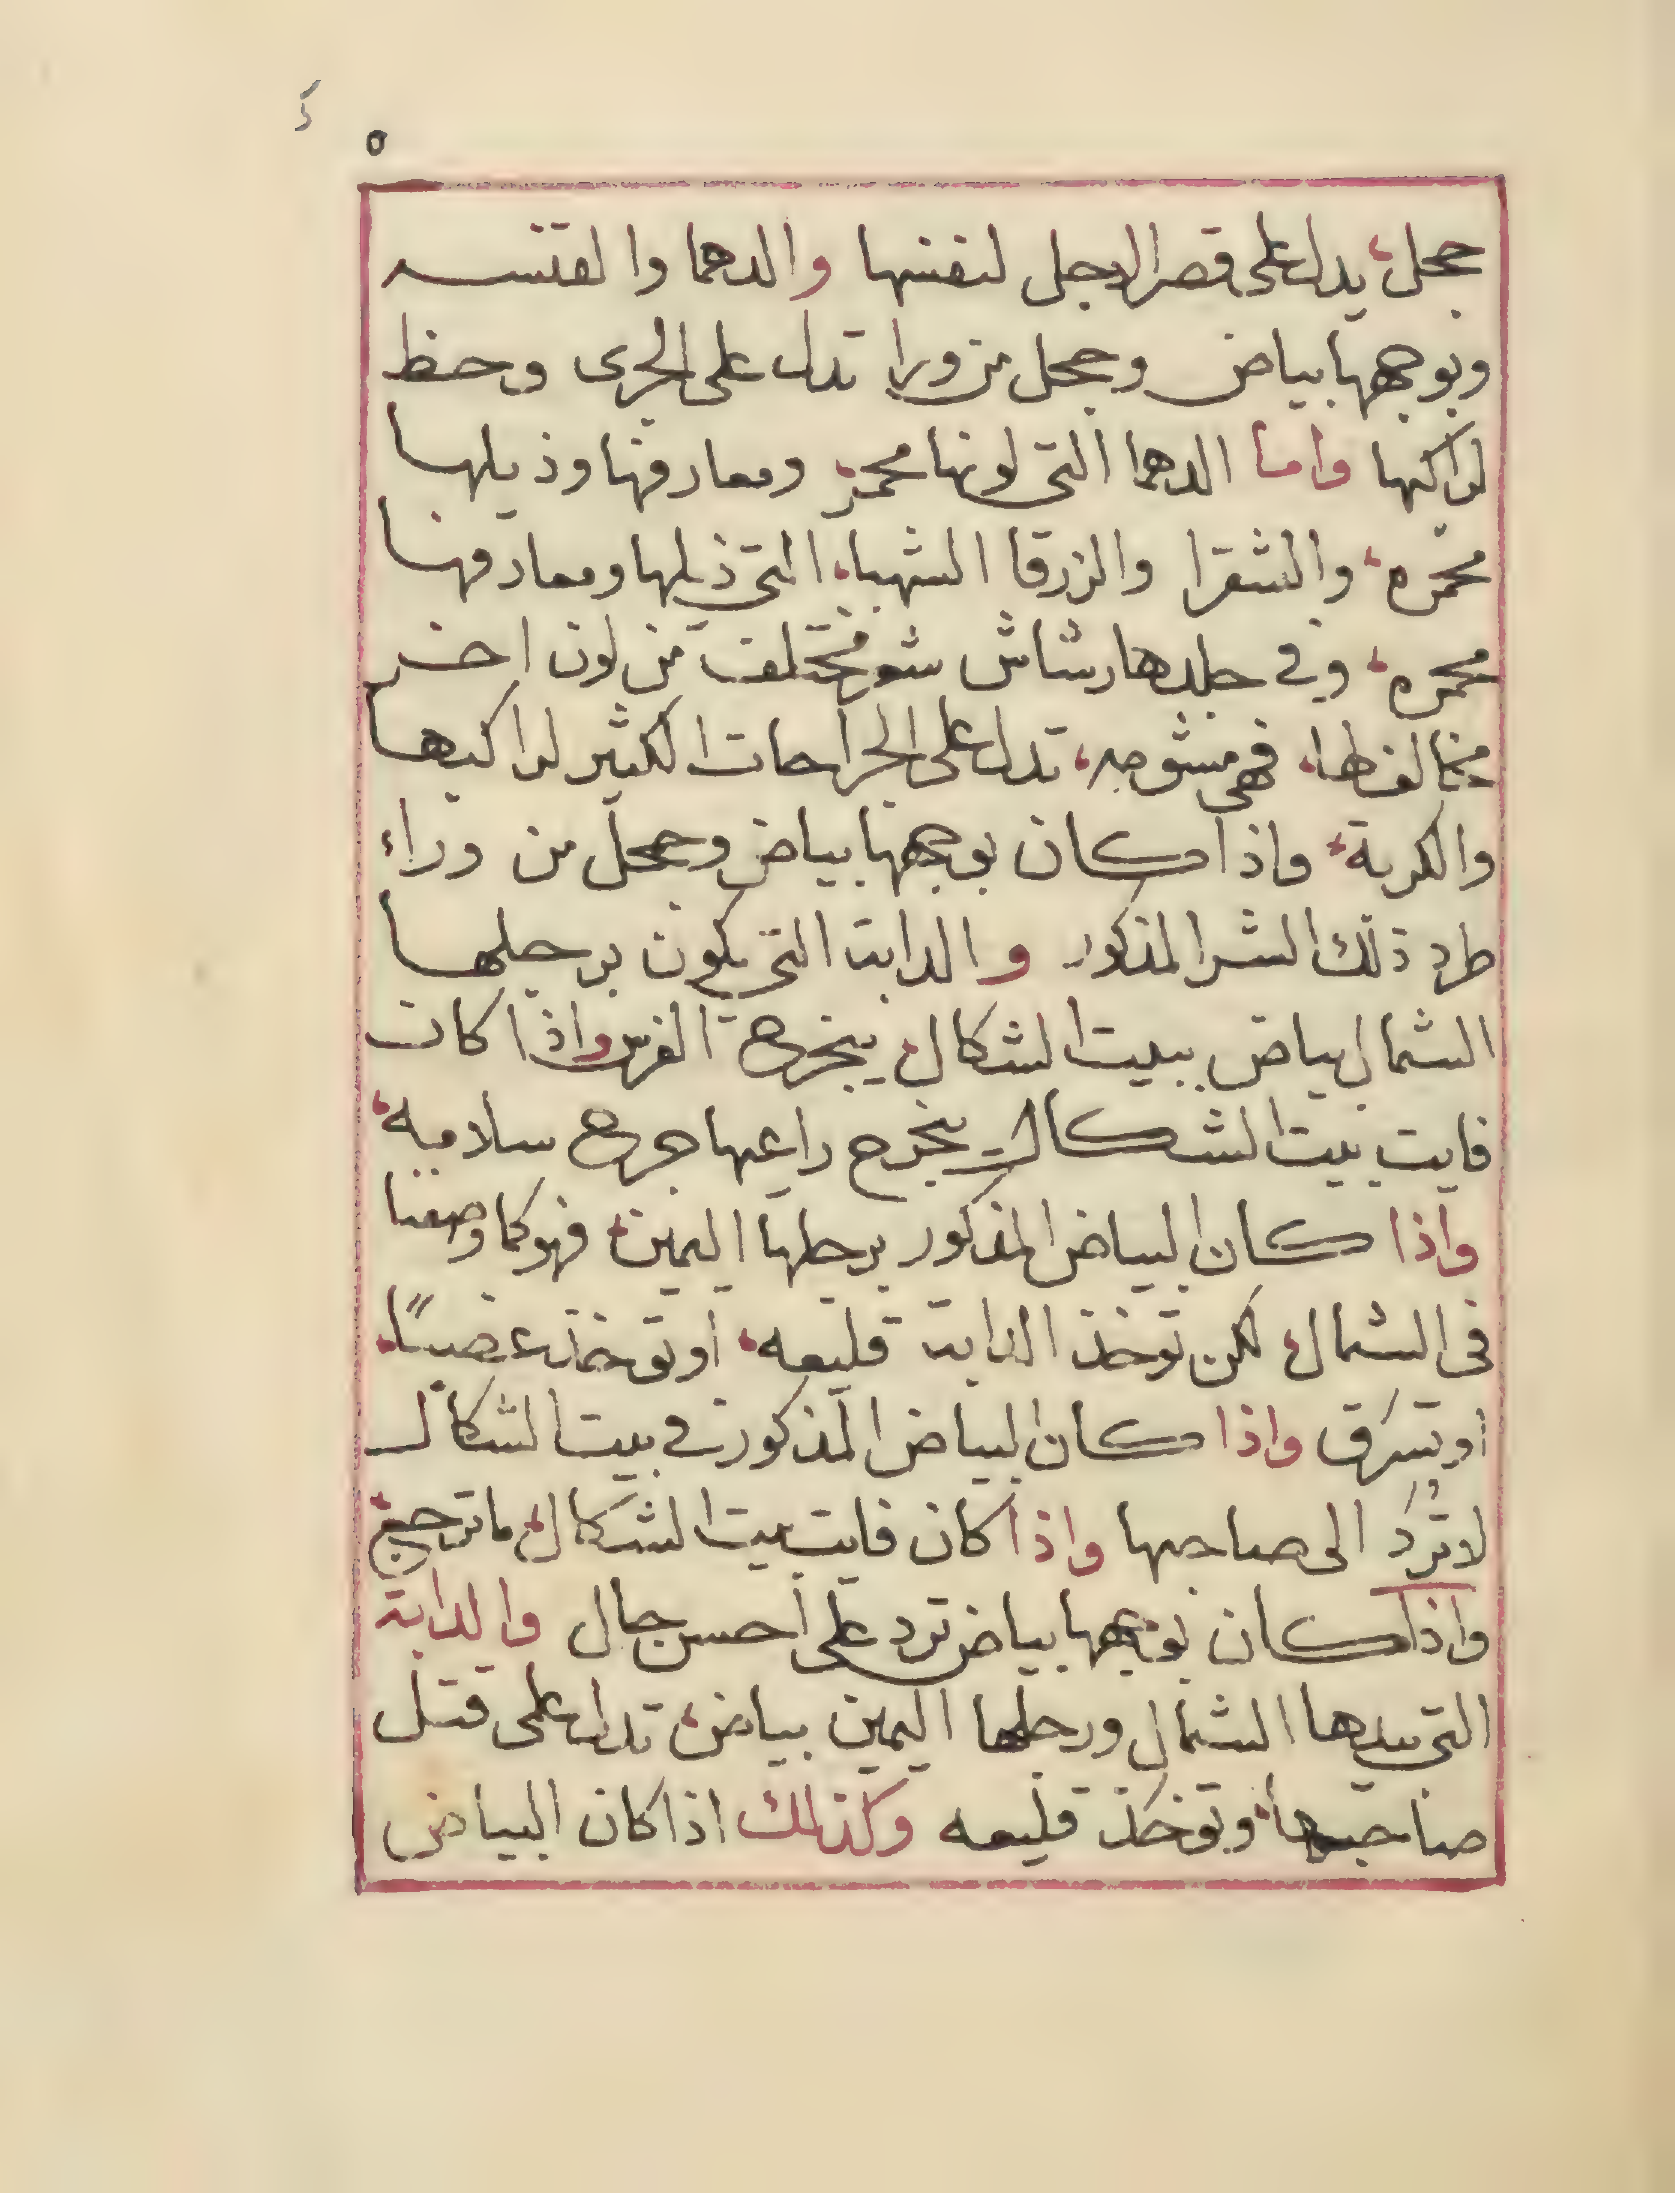 ٥
حجل يدل على قصر الاجل لنفسها والدهما والفتسه
وبوجهها بياض وحجل من ورا تدل على الجرى وحظ
لراكبها واما الدهما التى لونها محمر ومعارفها وذيلها
محمره والشقرا والزرقا الشهباء التي ذيلها ومعارفها
محمره وفي جلدها رشاش شو مختلف من لون اخر
مخالف لها فهى مشوجه تدل على الجراحات الكثير لراكبها
والكربة واذا كان بوجهها بياض وحجل من وراء
طرد ذلك الشر المذكور والدابت التي يكون برجلها
الشمال بياض ببيت الشكال ينجرح الفرس واذا كان
فايت بيت الشكال ينجرح راعيها جرح سلاميه
واذا كان البياض المذكور برجلها اليمين فهو كما وصفنا
فى الشمال لكن توخذ الدابت قليعه او توخذ غصبًا
او تسرق واذا كان البياض المذكور في بيت الشكال
لا تُرد الى صاحبها واذا كان فايت بيت الشكال ما ترجع
واذا كان بوجهها بياض ترد على احسن حال والدابت
التي بيدها الشمال ورجلها اليمين بياض تدل على قتل
صاحبها وتوخذ قليعه وكذلك اذا كان البياض